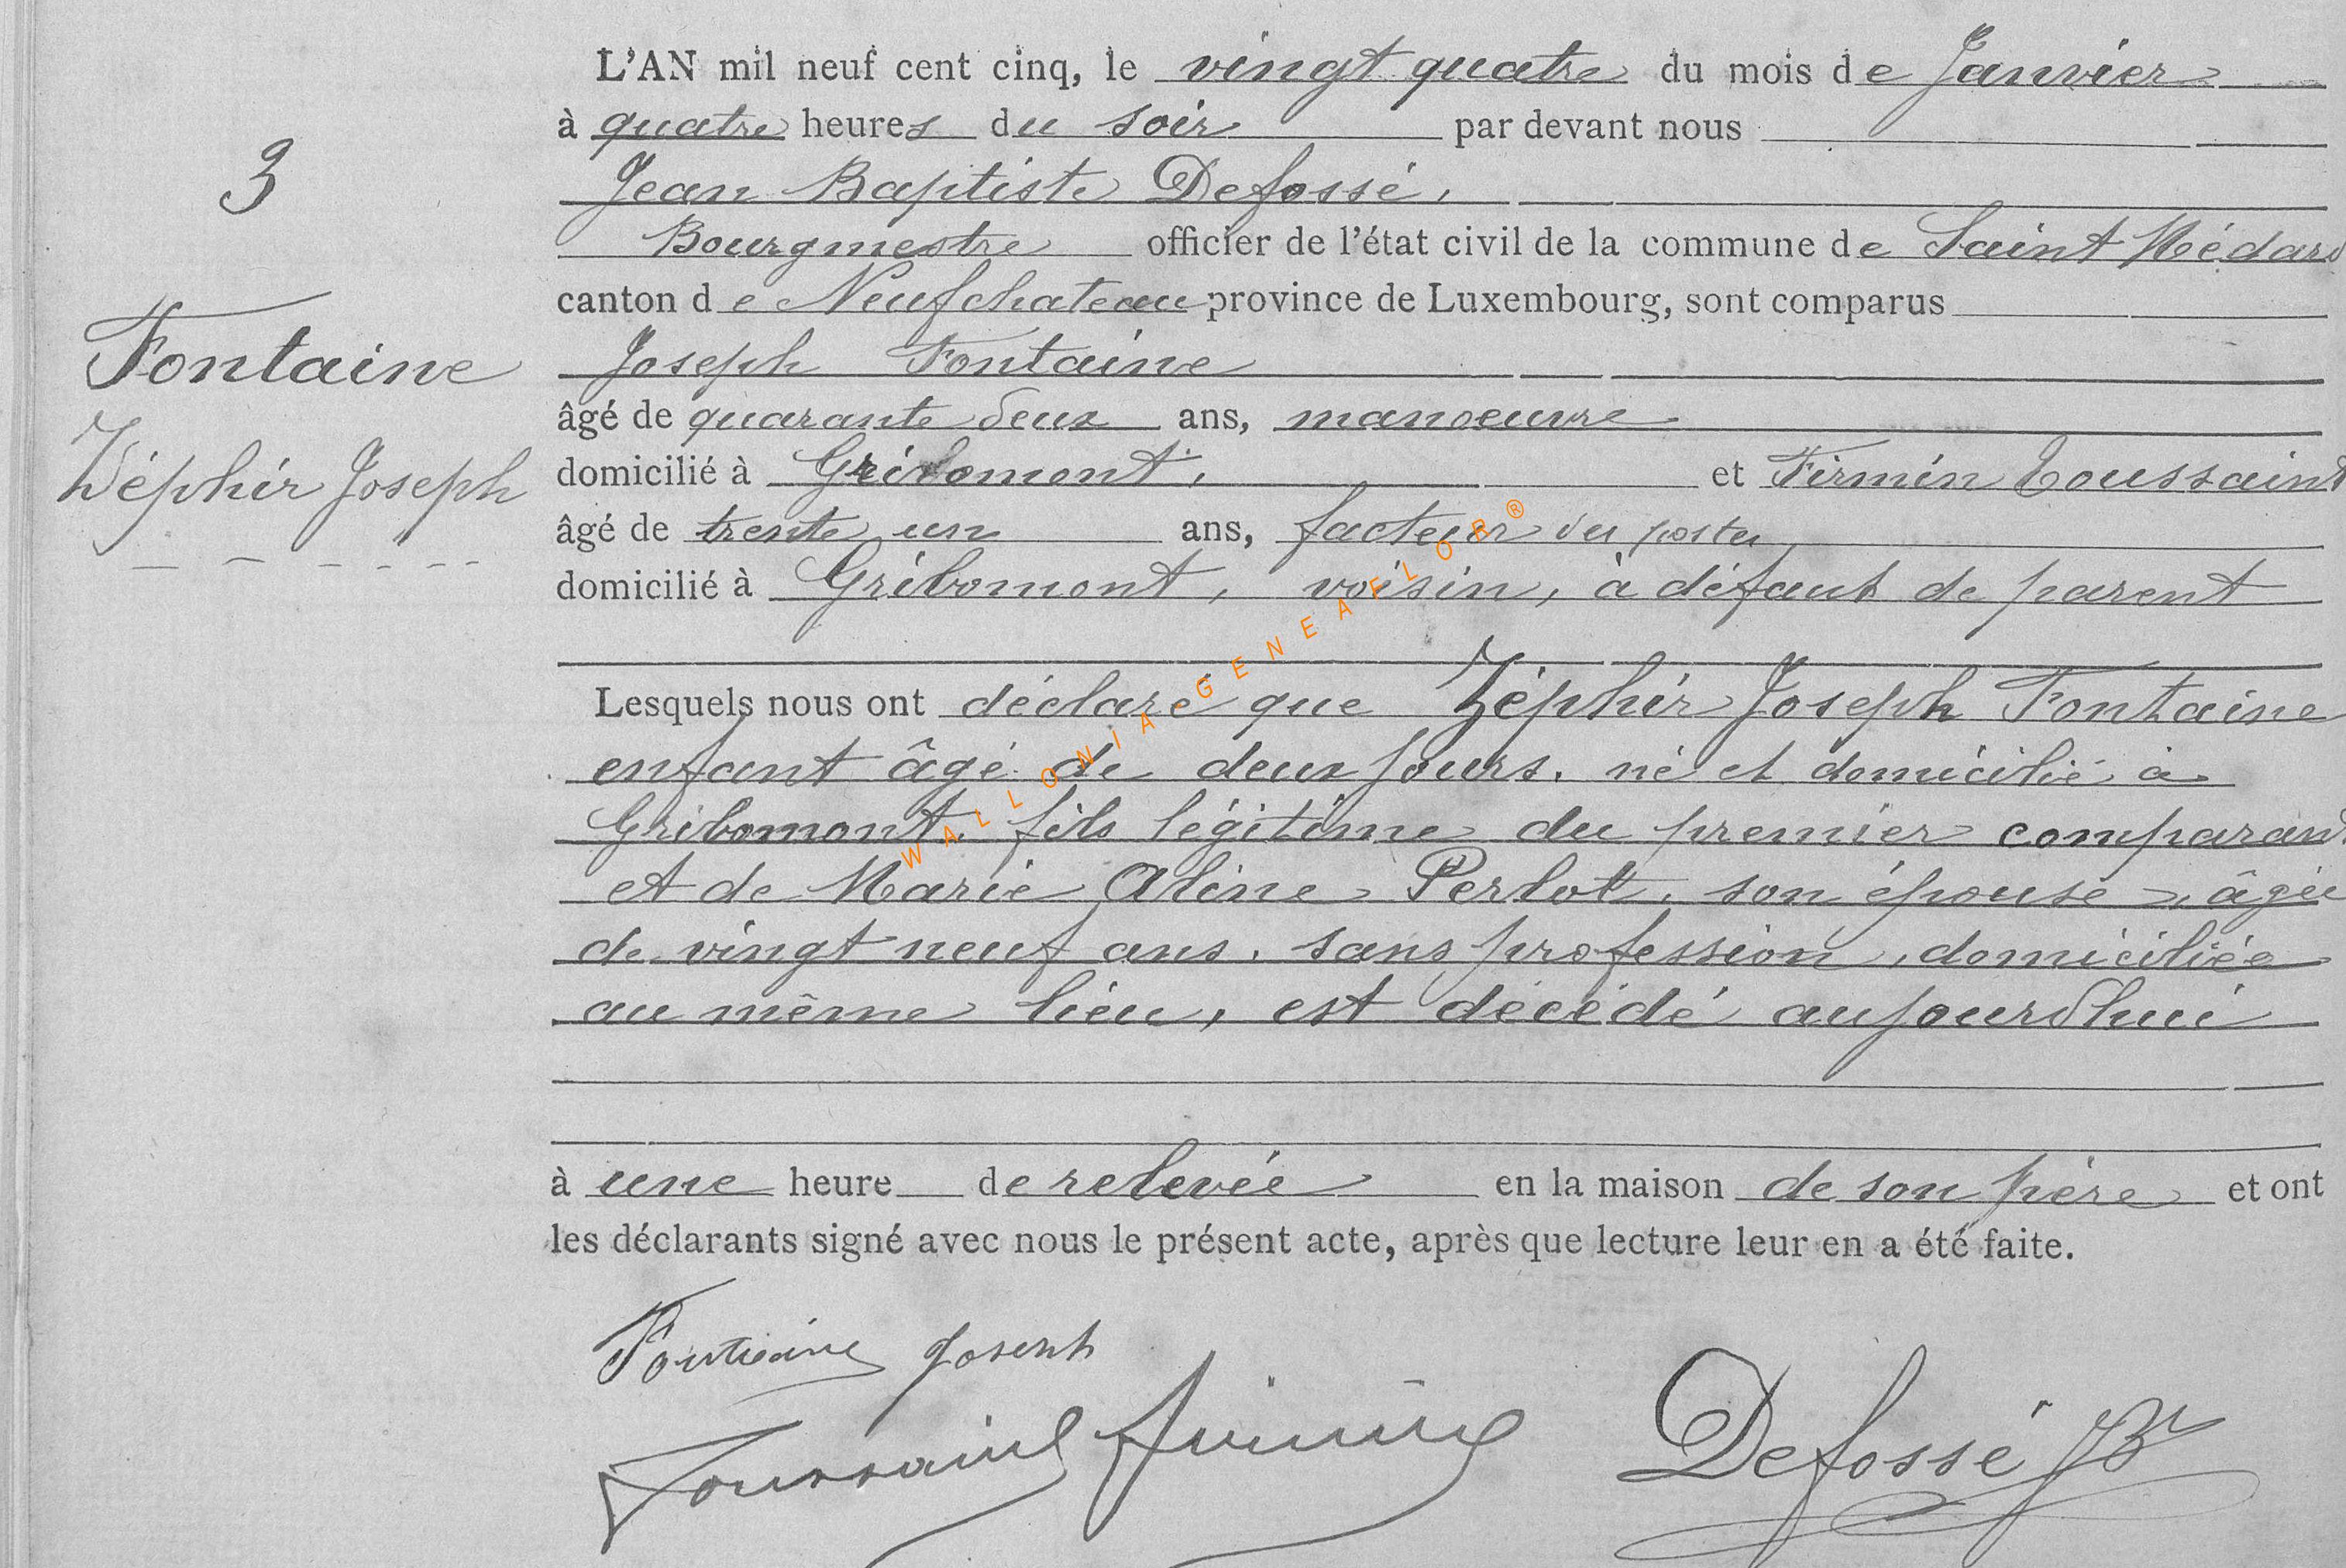 3
Fontaine
Zéphir Joseph
L'AN mil neuf cent cinq, le vingt quatre du mois de Janvier
à quatre heures du soir par devant nous
Jean Baptiste Defossé,
Bourgmestre officier de l'état civil de la commune de Saint Médard
canton de Neufchateau province de Luxembourg, sont comparus
Joseph Fontaine
âgé de quarante deux ans, manoeuvre
domicilié à Gribomont, et Firmin Toussaint
âgé de trente un ans, facteur des postes
domicilié à Gribomont, voisin, à défaut de parent
Lesquels nous ont déclaré que Zéphir Joseph Fontaine
enfant âgé de deux jours, né et domicilié à
Gribomont, fils légitime du premier comparant
et de Marie Aline Perlot, son épouse, âgée
de vingt neuf ans, sans profession, domiciliée
au même lieu, est décédé aujourd'hui
à une heure de relevée en la maison de son père et ont
les déclarants signé avec nous le présent acte, après que lecture leur en a été faite.
Fontaine Joseph
Toussaint Firmin
Defossé JB
WALLONIA GENEAFLOR®